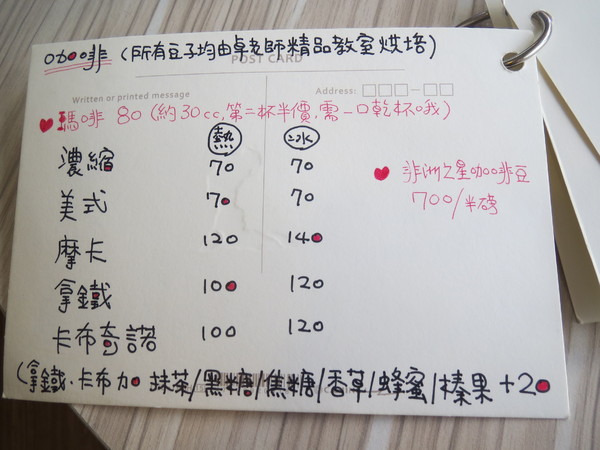 咖啡(所有豆子均由卓老師精品教室烘培)
POST CARD
Written or printed message
Address:
瑪啡 80 (約30cc,第二杯半價,需一口乾杯哦)
熱 冰
濃縮 70 70
美式 70 70
摩卡 120 140
拿鐵 100 120
卡布奇諾 100 120
非洲之星咖啡豆
700/半磅
(拿鐵.卡布加 抹茶/黑糖/焦糖/香草/蜂蜜/榛果+20